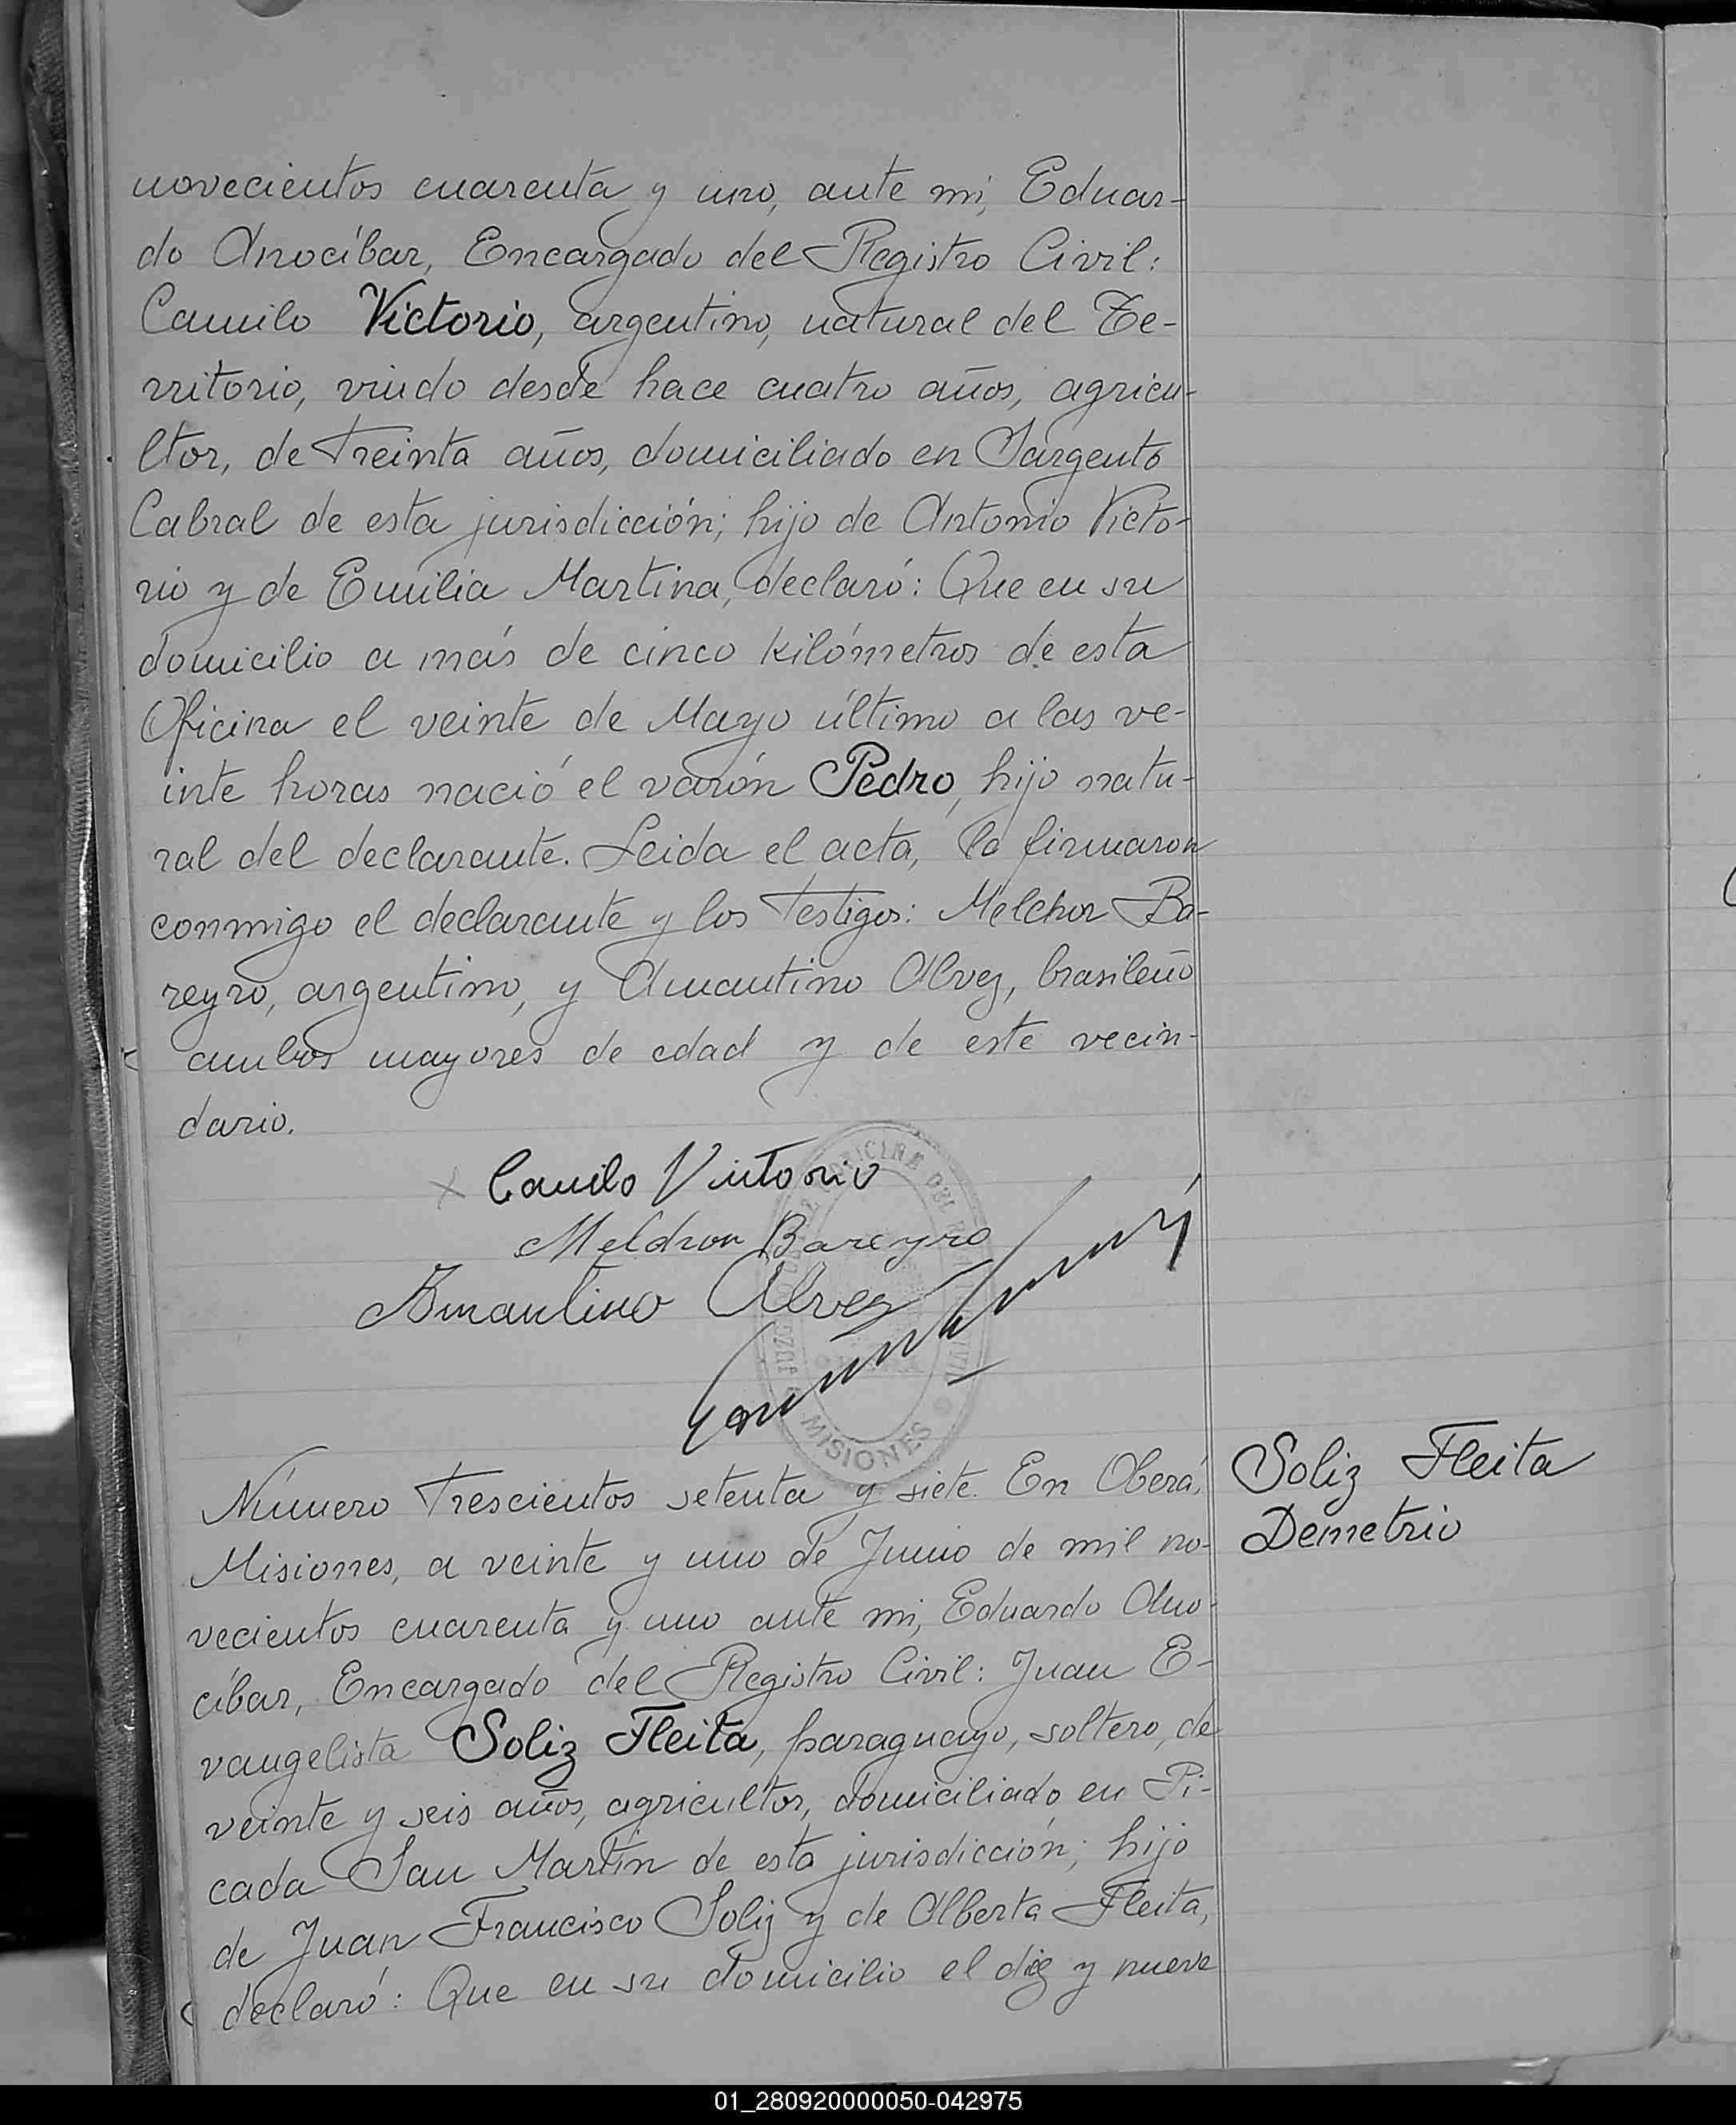 novecientos cuarenta y uno, ante mi, Eduar-
do Anocíbar, Encargado del Registro Civil:
Camilo Victorio, argentino, natural del Te-
rritorio, viudo desde hace cuatro años, agricu-
ltor, de treinta años, domiciliado en Sargento
Cabral de esta jurisdicción; hijo de Antonio Victo-
rio y de Emilia Martina, declaró: Que en su
domicilio a más de cinco kilómetros de esta
Oficina el veinte de Mayo último a las ve-
inte horas nació el varón Pedro, hijo natu-
ral del declarante. Leida el acta, la firmaron
conmigo el declarante y los testigos: Melchor Ba-
reyro, argentino, y Amantino Alvez, brasileño
ambos mayores de edad y de este vecin-
dario.
Camilo Victorio
Melchor Bareyro
Amantino Alvez
OFICINA DEL
MISIONES
Número trescientos setenta y siete. En Oberá,
Misiones, a veinte y uno de Junio de mil no-
vecientos cuarenta y uno ante mi, Eduardo Ano-
cíbar, Encargado del Registro Civil: Juan E-
vangelista Soliz Fleita, paraguayo, soltero, de
veinte y seis años, agricultor, domiciliado en Pi-
cada San Martín de esta jurisdicción; hijo
de Juan Francisco Soliz y de Alberta Fleita,
declaró: Que en su domicilio el diez y nueve
Soliz Fleita
Demetrio
01_280920000050-042975